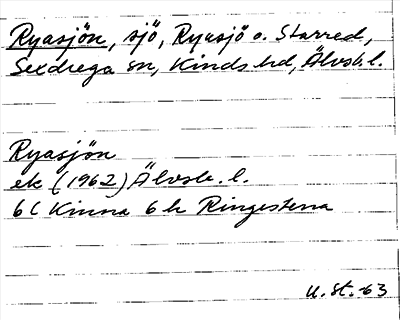 Ryasjön, sjö, Ryasjö o. Starred,
Sexdrega sn, Kinds hd, Älvsb. l.
Ryasjön
ek (1962) Älvsb. l.
6 C Kinna 6 h Ringestena
U. St. -63